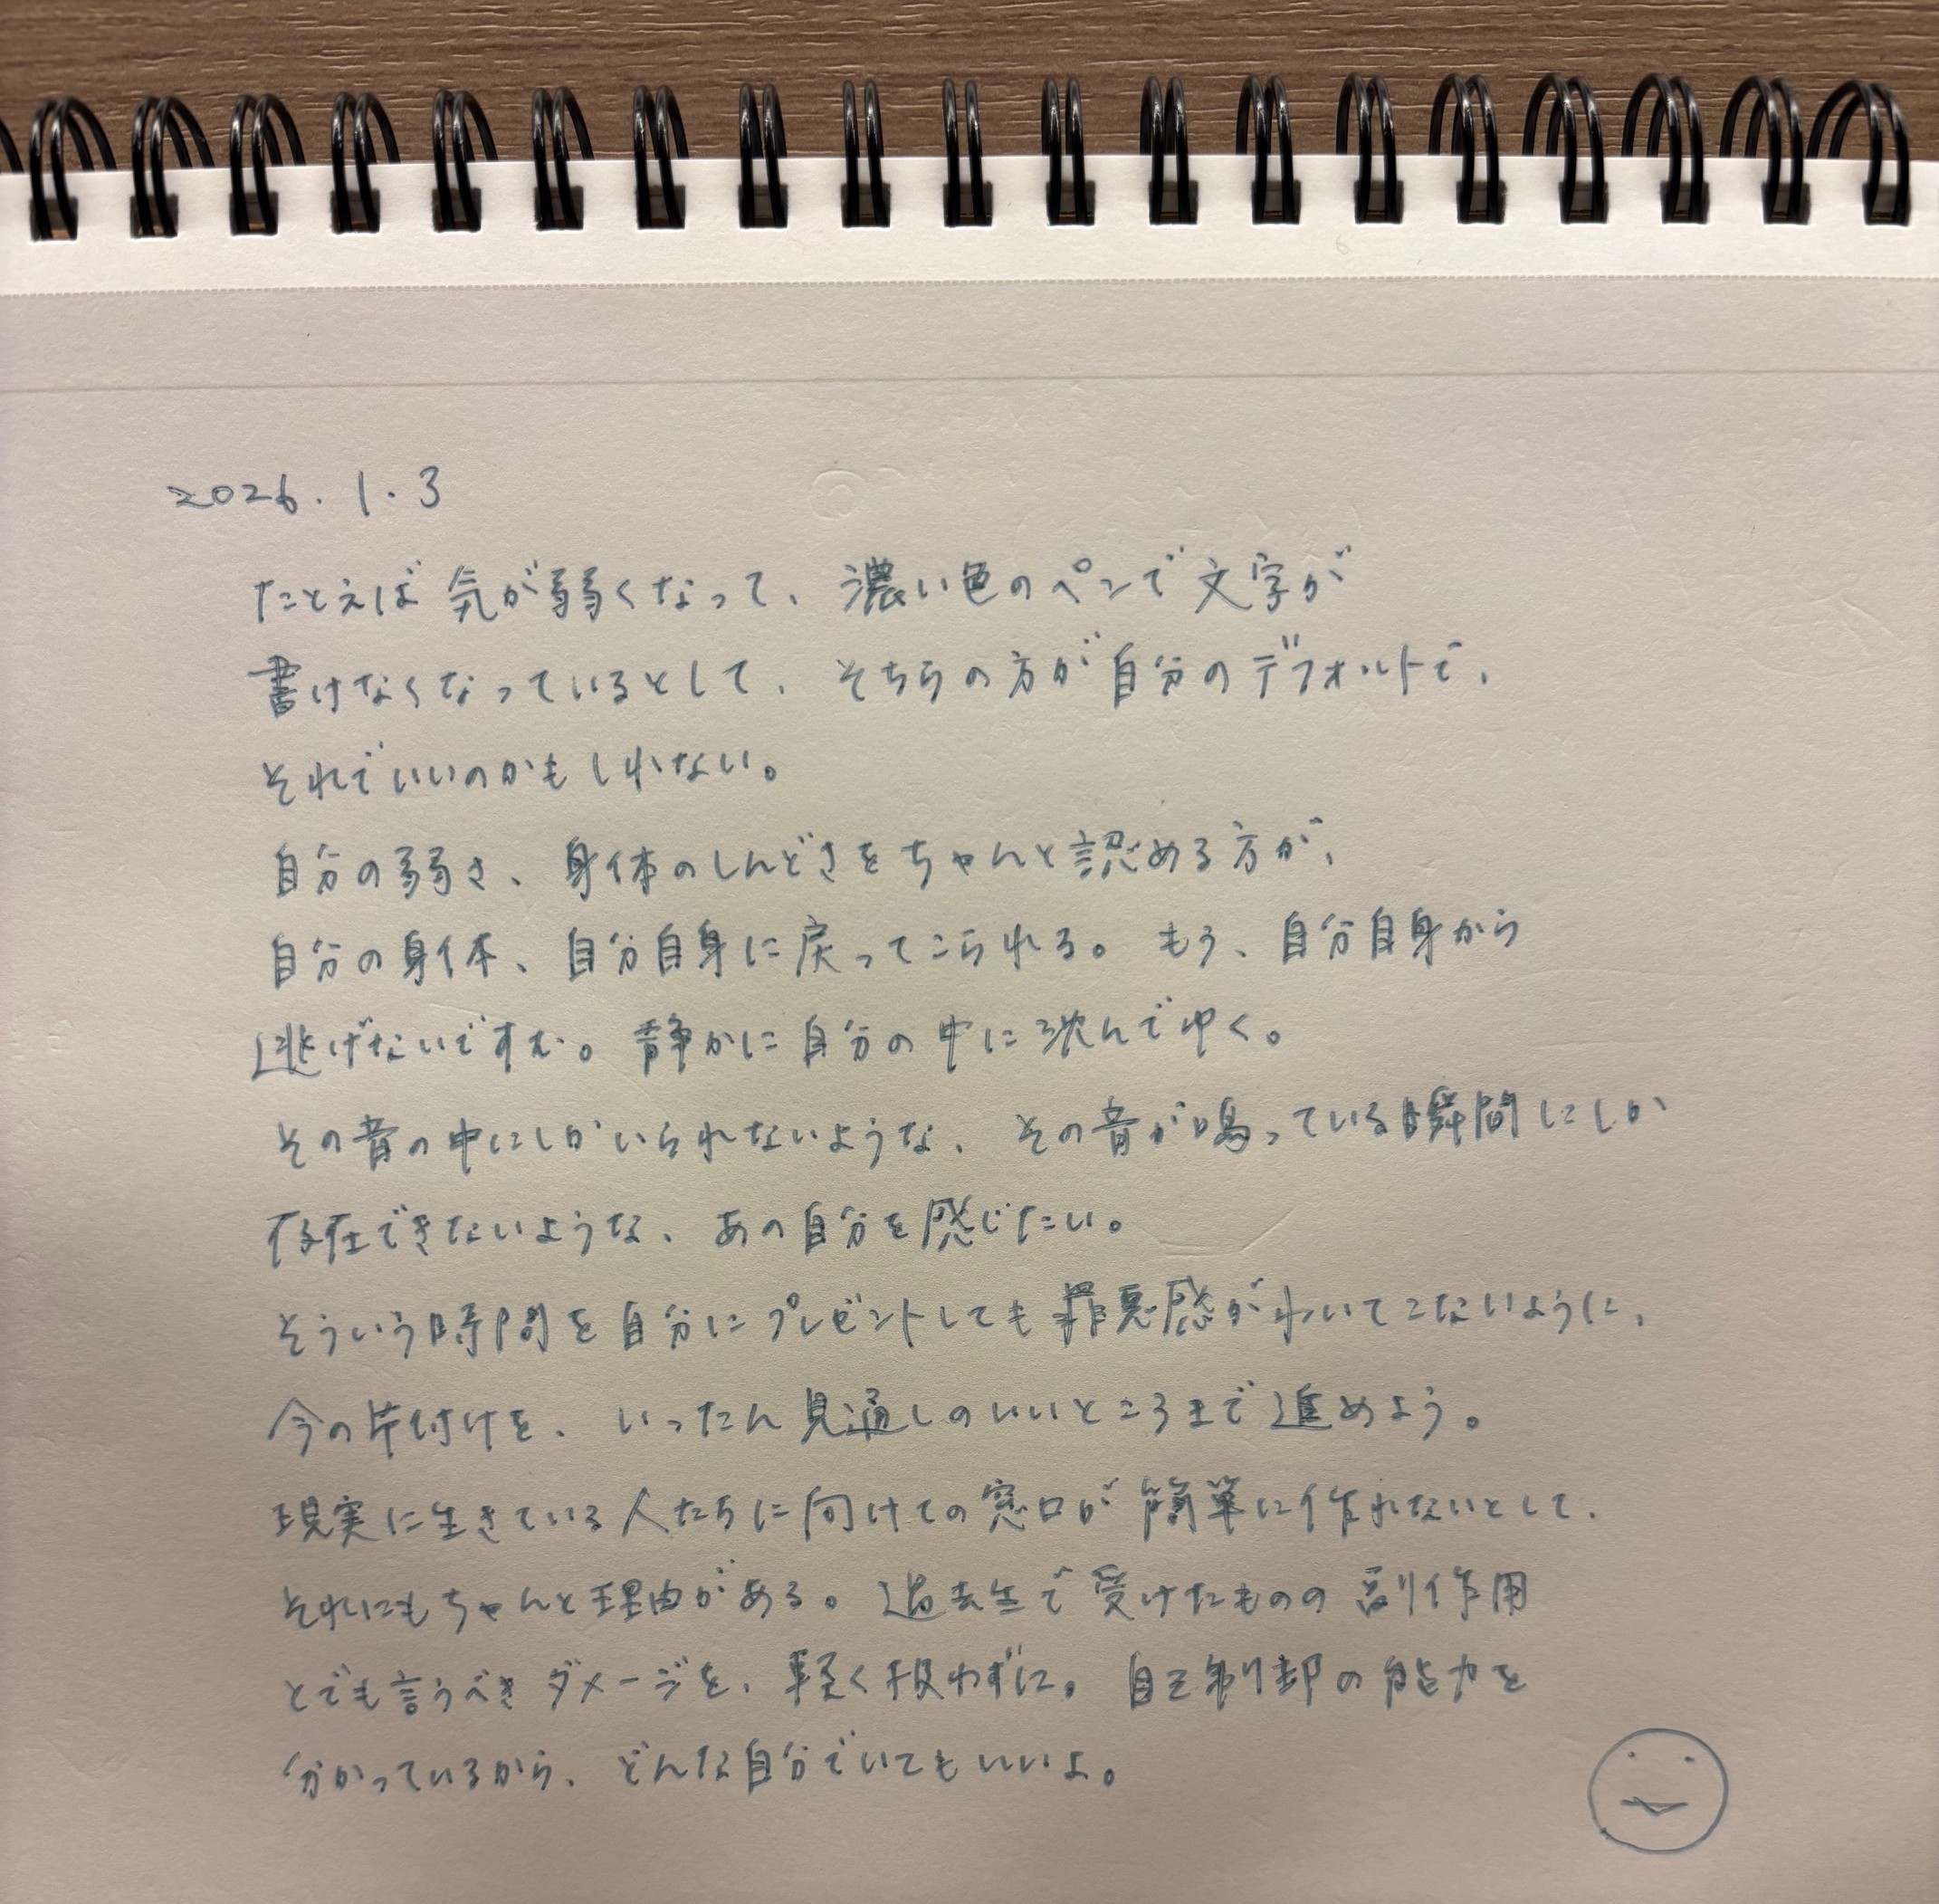 2026.1.3
たとえば気が弱くなって、濃い色のペンで文字が
書けなくなっているとして、そちらの方が自分のデフォルトで、
それでいいのかもしれない。
自分の弱さ、身体のしんどさをちゃんと認める方が、
自分の身体、自分自身に戻ってこられる。もう、自分自身から
逃げないですむ。静かに自分の中に沈んでゆく。
その音の中にしかいられないような、その音が鳴っている瞬間にしか
存在できないような、あの自分を感じたい。
そういう時間を自分にプレゼントしても罪悪感がわいてこないように、
今の片付けを、いったん見通しのいいところまで進めよう。
現実に生きている人たちに向けての窓口が簡単に作れないとして、
それにもちゃんと理由がある。過去生で受けたものの副作用
とでも言うべきダメージを、軽く扱わずに。自己制御の能力を
分かっているから、どんな自分でいてもいいよ。